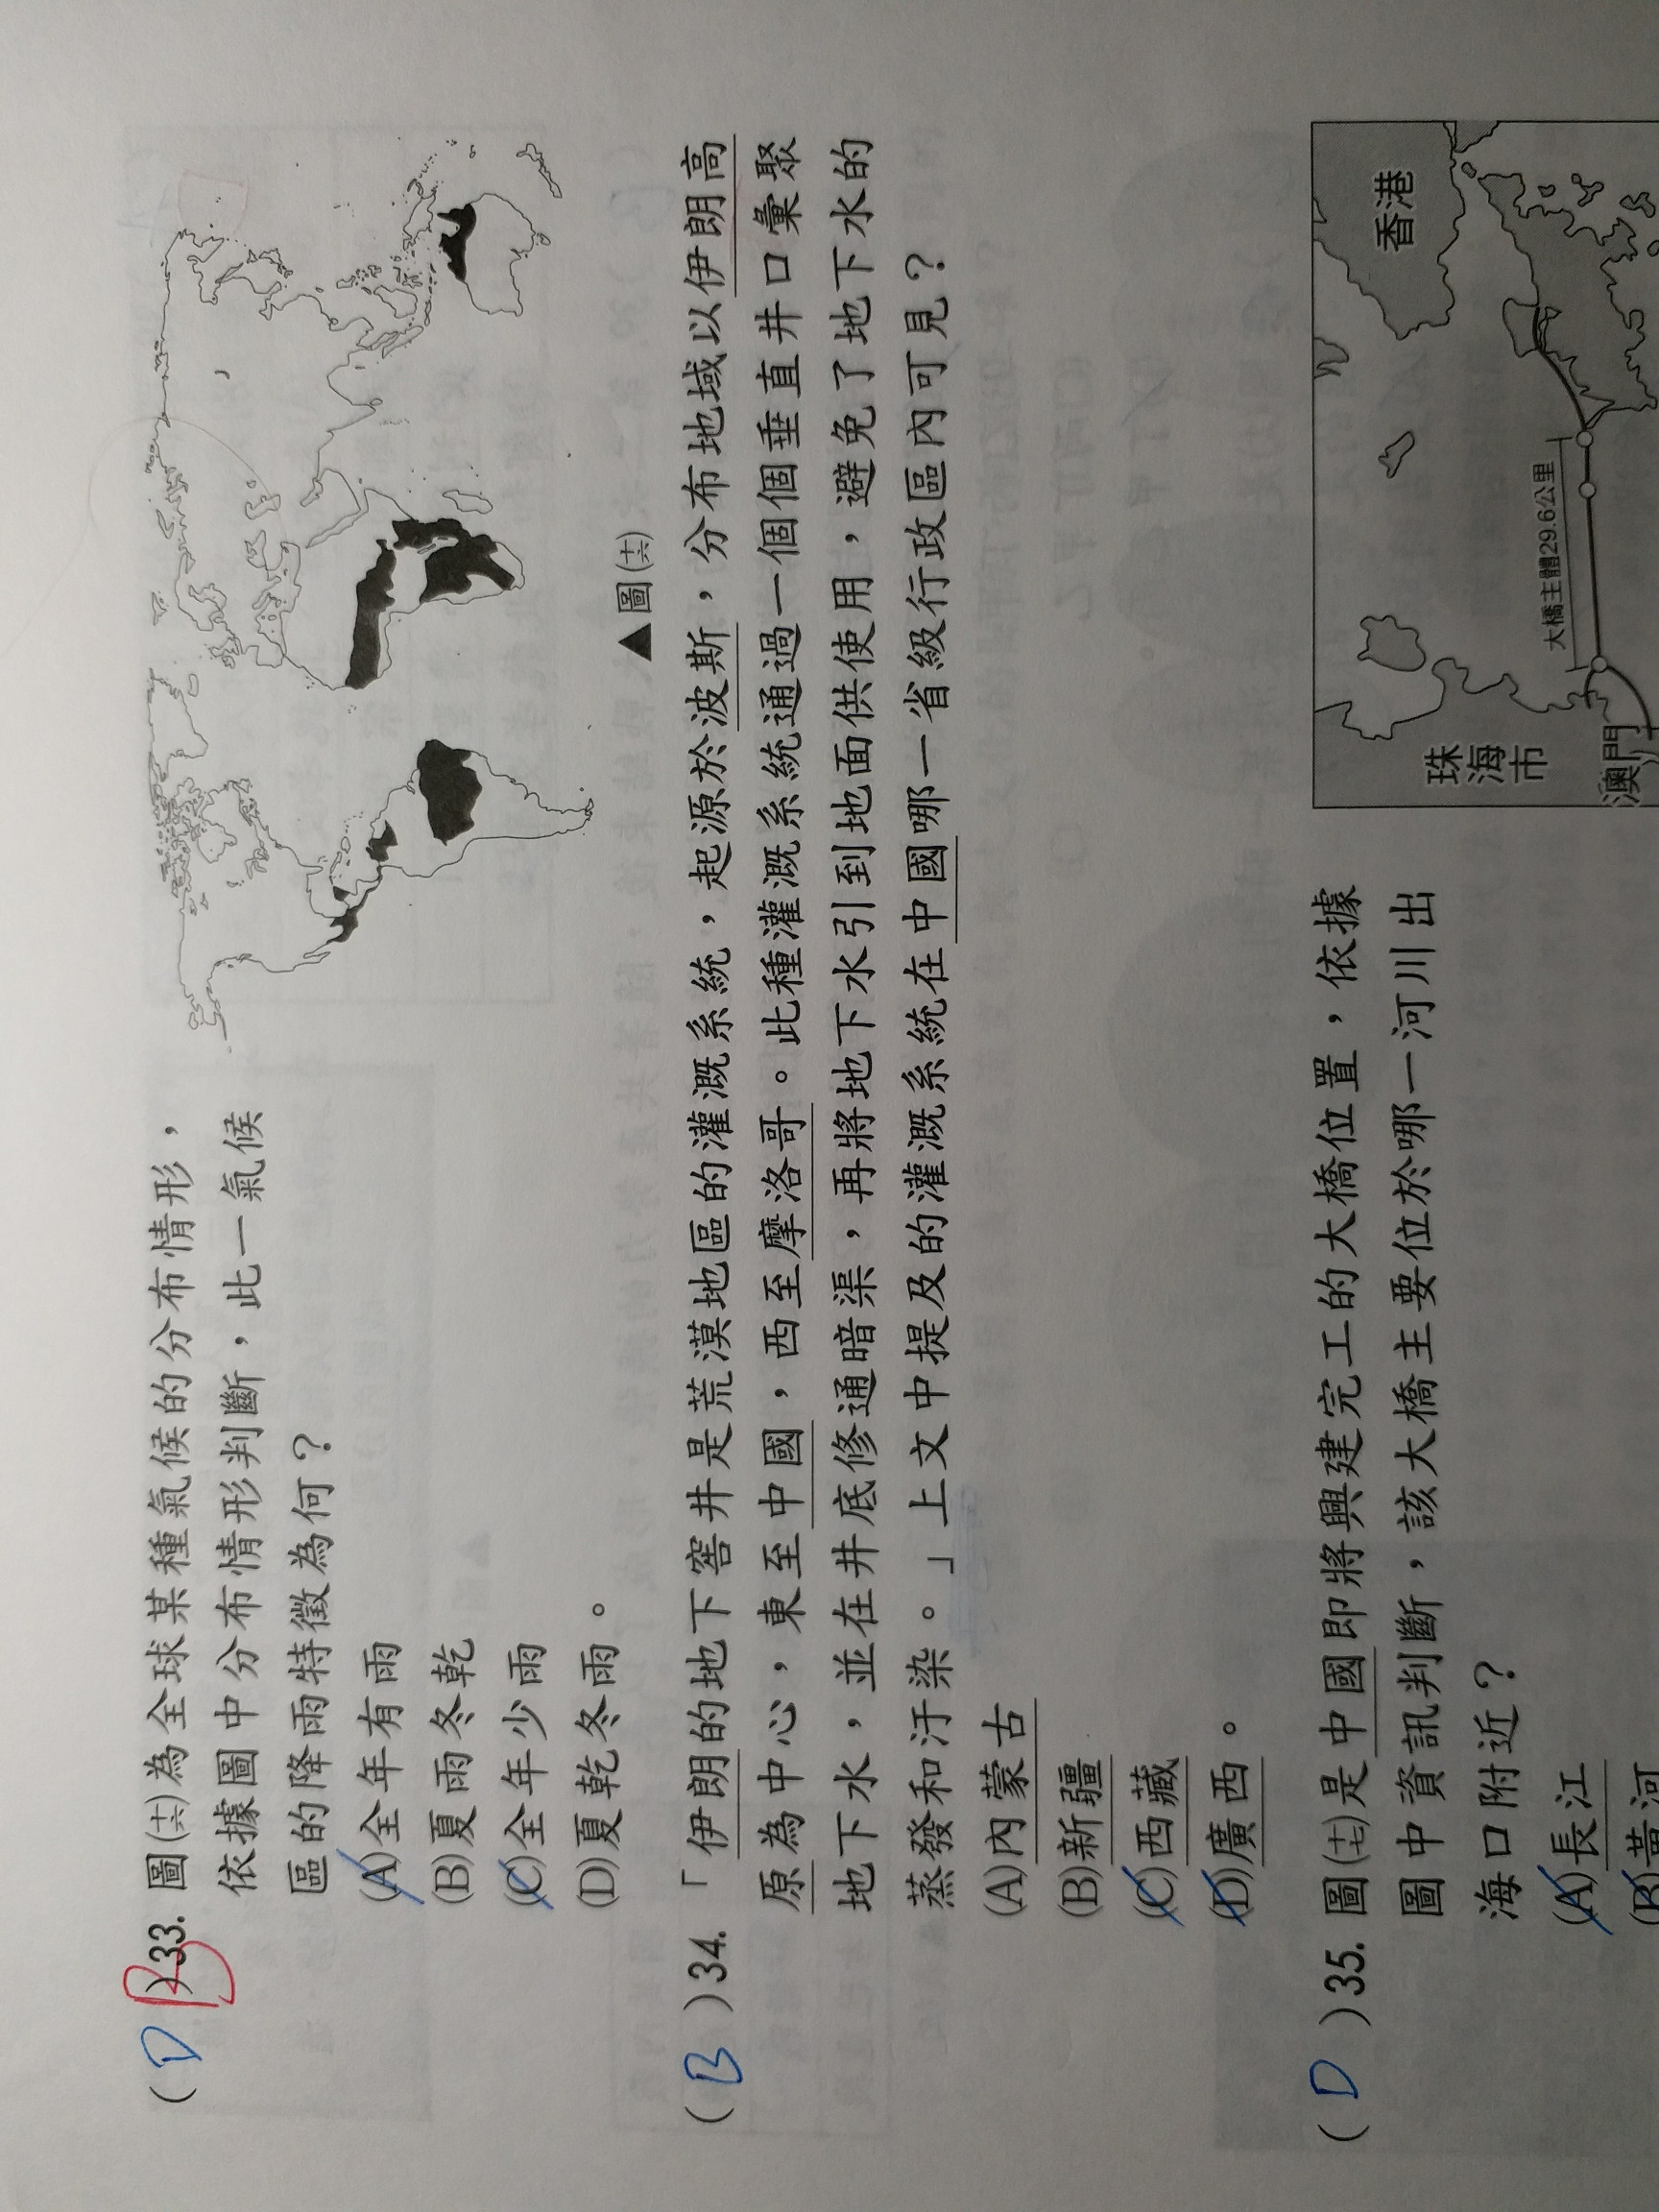 ( D )33. 圖(十六)為全球某種氣候的分布情形，
依據圖中分布情形判斷，此一氣候
區的降雨特徵為何？
(A)全年有雨
(B)夏雨冬乾
(C)全年少雨
(D)夏乾冬雨。
B
▲圖(十六)
( B )34. 「伊朗的地下窖井是荒漠地區的灌溉系統，起源於波斯，分布地域以伊朗高
原為中心，東至中國，西至摩洛哥。此種灌溉系統通過一個個垂直井口彙聚
地下水，並在井底修通暗渠，再將地下水引到地面供使用，避免了地下水的
蒸發和汙染。」上文中提及的灌溉系統在中國哪一省級行政區內可見？
(A)內蒙古
(B)新疆
(C)西藏
(D)廣西。
( D )35. 圖(十七)是中國即將興建完工的大橋位置，依據
圖中資訊判斷，該大橋主要位於哪一河川出
海口附近？
(A)長江
(B)黃河
香港
大橋主體29.6公里
珠海市
澳門